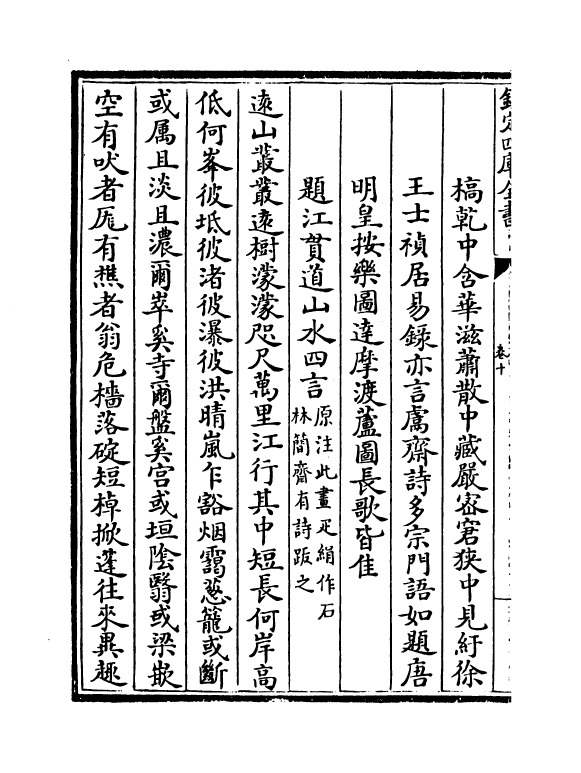 欽定四庫全書
卷十
槁乾中含華滋蕭散中藏嚴密窘狹中見紆徐
王士禎居易錄亦言鬳齋詩多宗門語如題唐
明皇按樂圖達摩渡蘆圖長歌皆佳
題江貫道山水四言原注此畫疋絹作石
林簡齋有詩跋之
遠山叢叢遠樹濛濛咫尺萬里江行其中短長何岸高
低何峯彼坻彼渚彼瀑彼洪晴嵐乍豁烟靄葱籠或斷
或属且淡且濃爾崒奚寺爾盤奚宮或垣陰翳或梁嵌
空有吠者厖有樵者翁危檣落碇短棹掀篷往來異趣